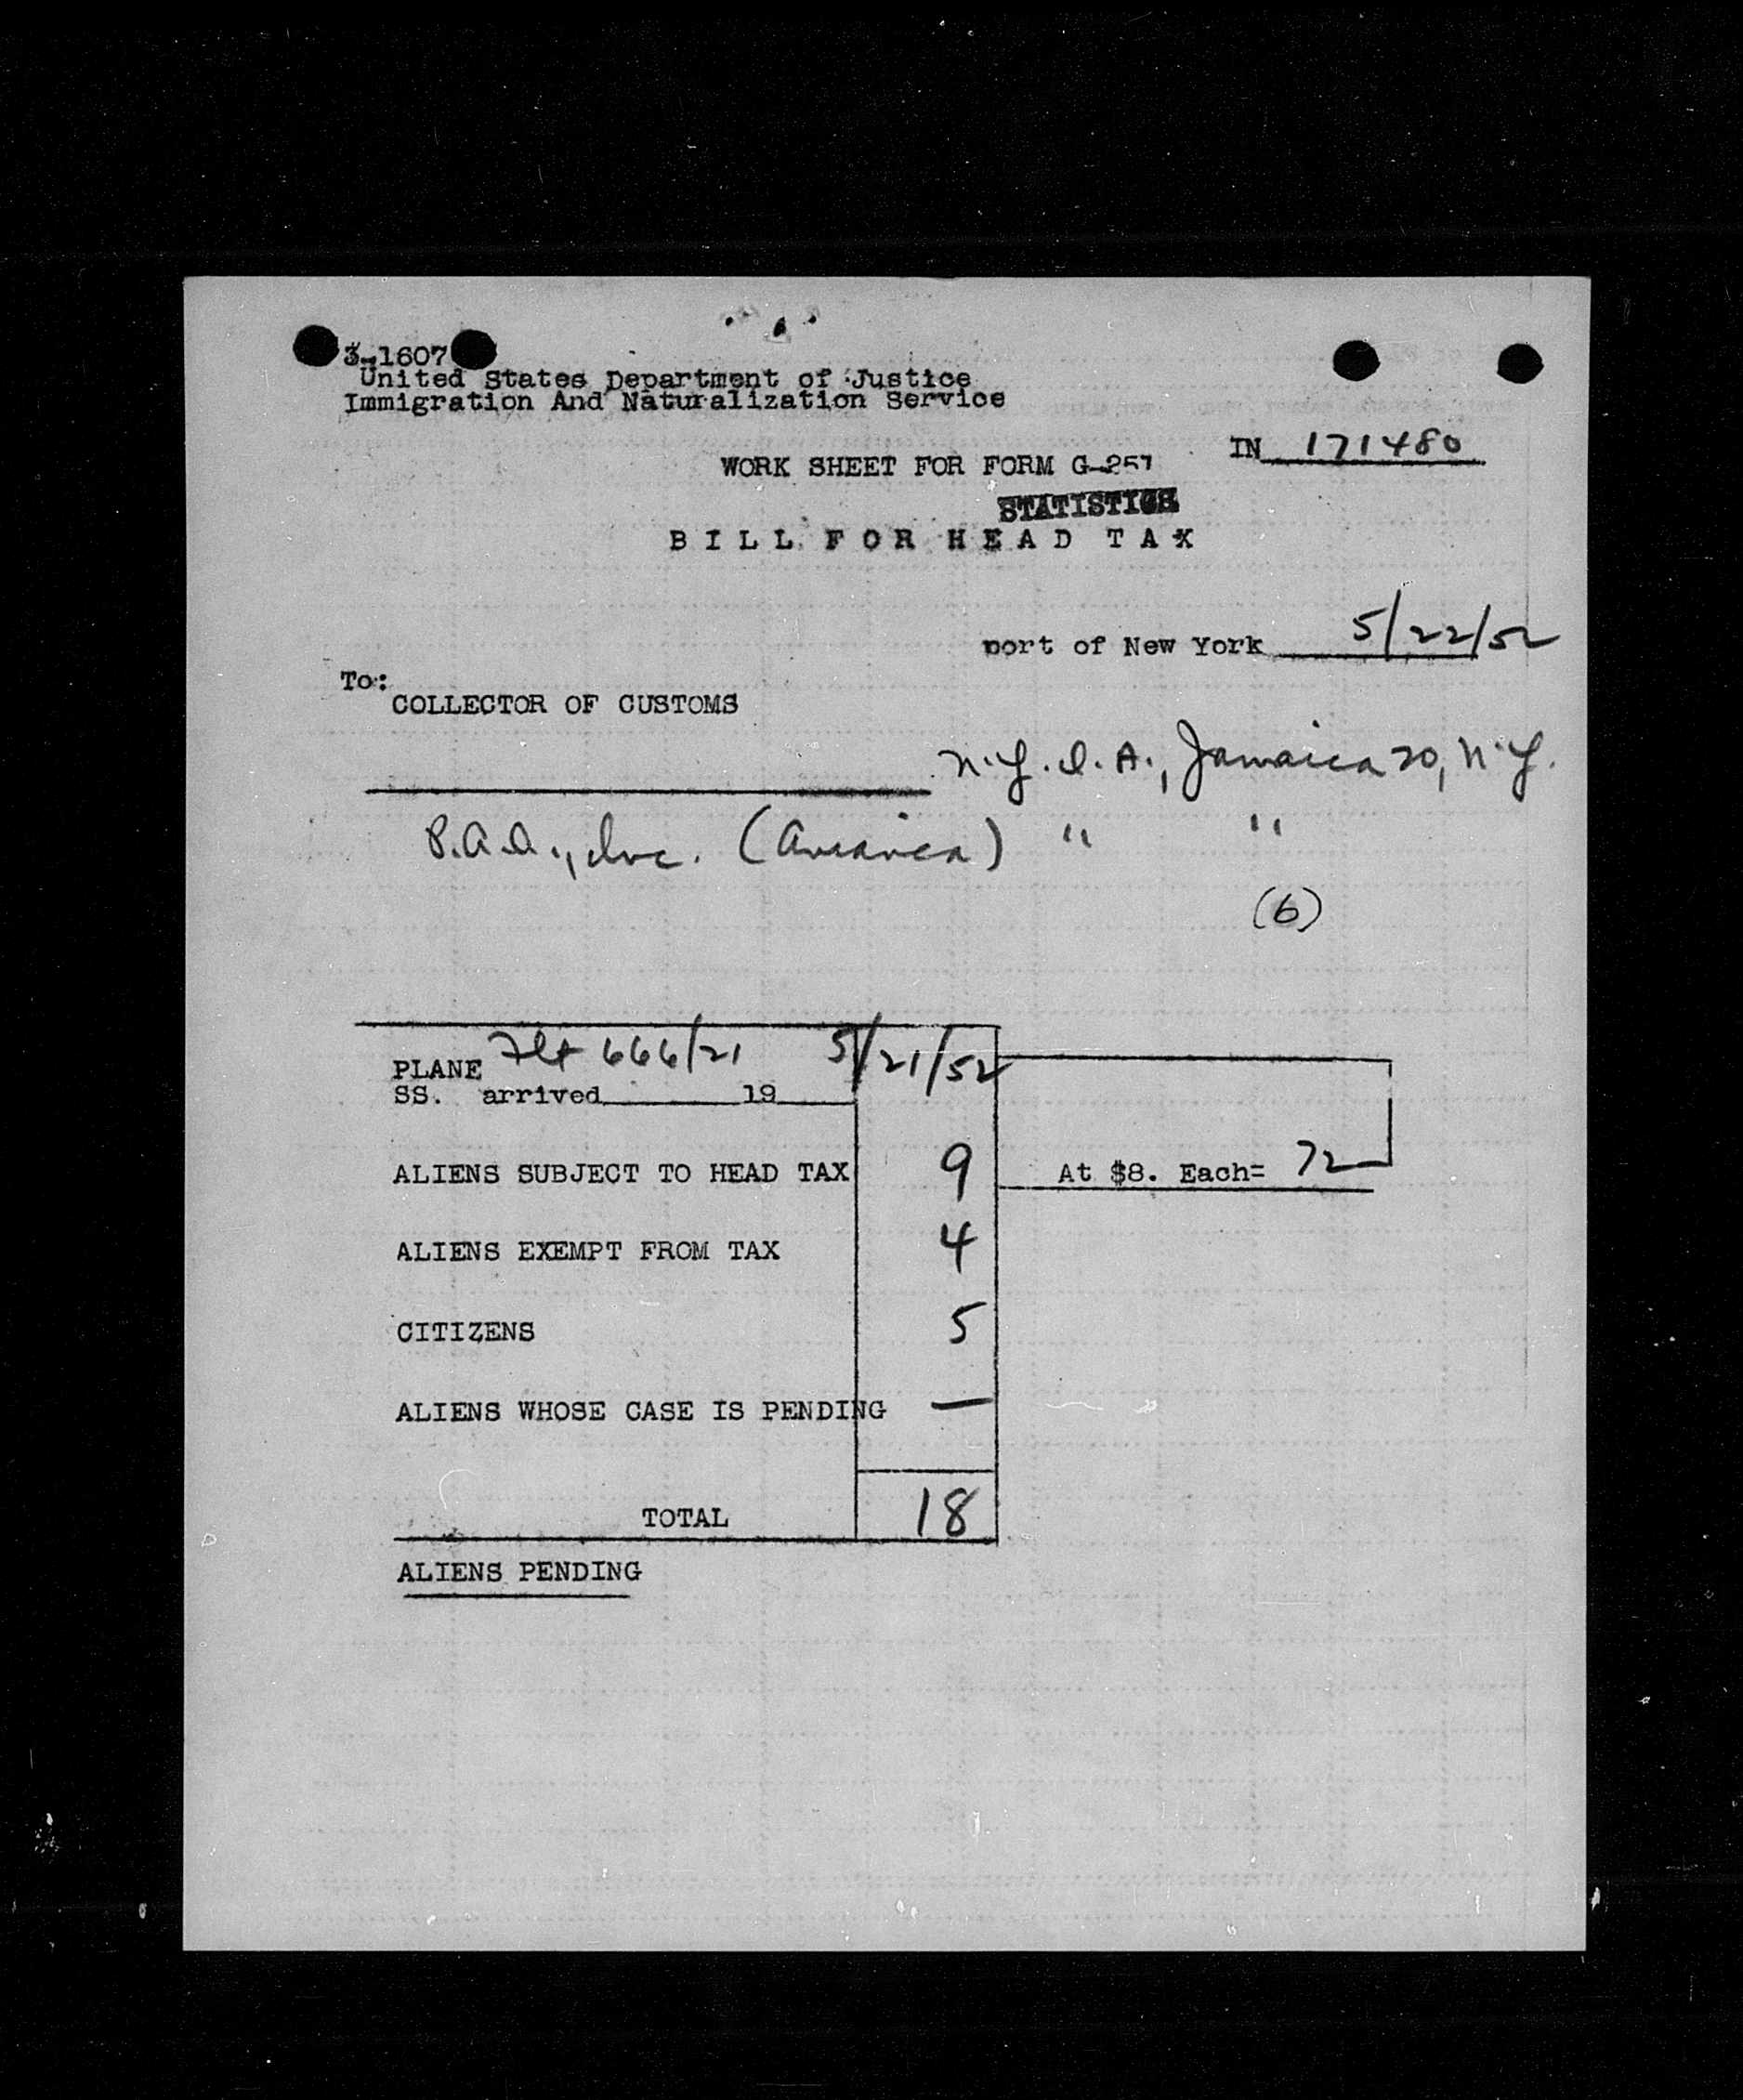 3-1607
United States Department of Justice
Immigration And Naturalization Service
IN 171480
WORK SHEET FOR FORM G-257
STATISTICS
BILL FOR HEAD TAX
port of New York 5/22/52
To:
COLLECTOR OF CUSTOMS
N.Y.I.A., Jamaica 20, N.Y.
P.A.A., Inc. " "
(6)
PLANE Flt 666/21 5/21/52
SS. arrived 19
ALIENS SUBJECT TO HEAD TAX 9 At $8. Each= 72
ALIENS EXEMPT FROM TAX 4
CITIZENS 5
ALIENS WHOSE CASE IS PENDING —
TOTAL 18
ALIENS PENDING